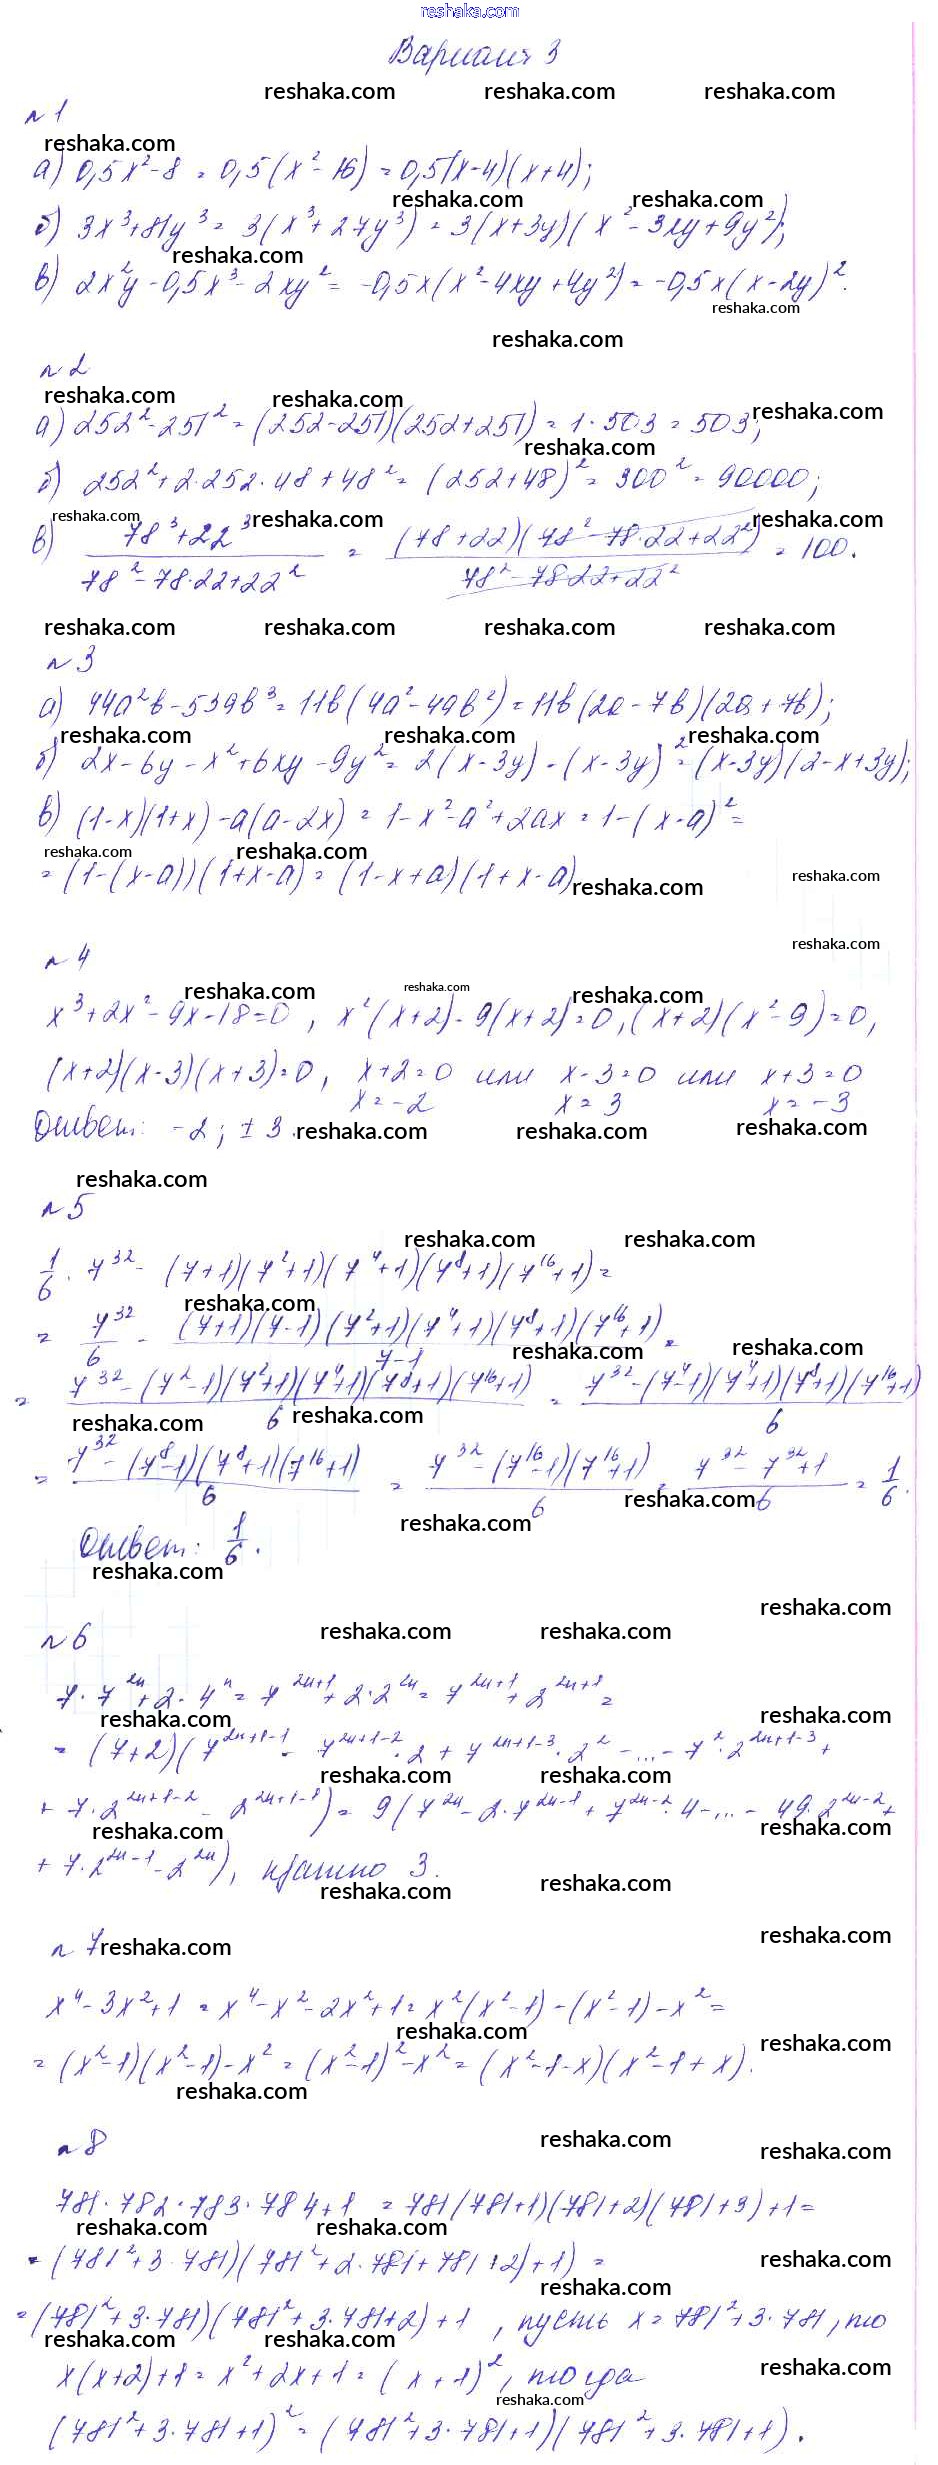 reshaka.com
Вариант 3
reshaka.com reshaka.com reshaka.com
№1
reshaka.com
а) 0,5x² - 8 = 0,5(x² - 16) = 0,5(x-4)(x+4);
reshaka.com reshaka.com
б) 3x³+81y³ = 3(x³+27y³) = 3(x+3y)(x²-3xy+9y²);
reshaka.com
в) 2x²y - 0,5x³ - 2xy² = -0,5x(x²-4xy+4y²) = -0,5x(x-2y)².
reshaka.com
reshaka.com
№2
reshaka.com reshaka.com reshaka.com
а) 252² - 251² = (252-251)(252+251) = 1·503 = 503;
reshaka.com
б) 252²+2·252·48+48² = (252+48)² = 300² = 90000;
reshaka.com reshaka.com reshaka.com
в) (78³+22³)/(78²-78·22+22²) = ((78+22)(78²-78·22+22²))/(78²-78·22+22²) = 100.
reshaka.com reshaka.com reshaka.com reshaka.com
№3
а) 44a²b - 539b³ = 11b(4a²-49b²) = 11b(2a-7b)(2a+7b);
reshaka.com reshaka.com reshaka.com
б) 2x-6y-x²+6xy-9y² = 2(x-3y)-(x-3y)² = (x-3y)(2-x+3y);
в) (1-x)(1+x)-a(a-2x) = 1-x²-a²+2ax = 1-(x-a)² =
reshaka.com reshaka.com
= (1-(x-a))(1+x-a) = (1-x+a)(1+x-a)
reshaka.com reshaka.com
reshaka.com
№4
reshaka.com reshaka.com reshaka.com
x³+2x²-9x-18=0, x²(x+2)-9(x+2)=0, (x+2)(x²-9)=0,
(x+2)(x-3)(x+3)=0, x+2=0 или x-3=0 или x+3=0
x=-2 x=3 x=-3
Ответ: -2; ±3.
reshaka.com reshaka.com reshaka.com
reshaka.com
№5
reshaka.com reshaka.com
1/6 · 7³² - (7+1)(7²+1)(7⁴+1)(7⁸+1)(7¹⁶+1) =
reshaka.com
= 7³²/6 - ((7+1)(7-1)(7²+1)(7⁴+1)(7⁸+1)(7¹⁶+1))/(7-1) =
reshaka.com reshaka.com
= (7³²-(7²-1)(7²+1)(7⁴+1)(7⁸+1)(7¹⁶+1))/6 = (7³²-(7⁴-1)(7⁴+1)(7⁸+1)(7¹⁶+1))/6
reshaka.com reshaka.com
= (7³²-(7⁸-1)(7⁸+1)(7¹⁶+1))/6 = (7³²-(7¹⁶-1)(7¹⁶+1))/6 = (7³²-7³²+1)/6 = 1/6.
reshaka.com
reshaka.com
Ответ: 1/6.
reshaka.com
reshaka.com
№6
reshaka.com reshaka.com
7·7²ⁿ+2·4ⁿ = 7²ⁿ⁺¹+2·2²ⁿ = 7²ⁿ⁺¹+2²ⁿ⁺¹ =
reshaka.com reshaka.com
= (7+2)(7²ⁿ⁺¹⁻¹ - 7²ⁿ⁺¹⁻²·2 + 7²ⁿ⁺¹⁻³·2² - ... - 7²·2²ⁿ⁺¹⁻³ +
reshaka.com reshaka.com
+ 7·2²ⁿ⁺¹⁻² - 2²ⁿ⁺¹⁻¹) = 9(7²ⁿ - 2·7²ⁿ⁻¹ + 7²ⁿ⁻²·4 - ... - 49·2²ⁿ⁻² +
reshaka.com reshaka.com
+ 7·2²ⁿ⁻¹ - 2²ⁿ), кратно 3.
reshaka.com reshaka.com
reshaka.com
№7
reshaka.com
x⁴-3x²+1 = x⁴-x²-2x²+1 = x²(x²-1)-(x²-1)-x² =
reshaka.com reshaka.com
= (x²-1)(x²-1)-x² = (x²-1)²-x² = (x²-1-x)(x²-1+x).
reshaka.com
№8
reshaka.com reshaka.com
781·782·783·784+1 = 781(781+1)(781+2)(781+3)+1 =
reshaka.com reshaka.com
= (781²+3·781)(781²+2·781+781+2)+1) =
reshaka.com
reshaka.com
= (781²+3·781)(781²+3·781+2)+1, пусть x=781²+3·781, то
reshaka.com reshaka.com
reshaka.com
x(x+2)+1 = x²+2x+1 = (x+1)², тогда
reshaka.com
(781²+3·781+1)² = (781²+3·781+1)(781²+3·781+1).